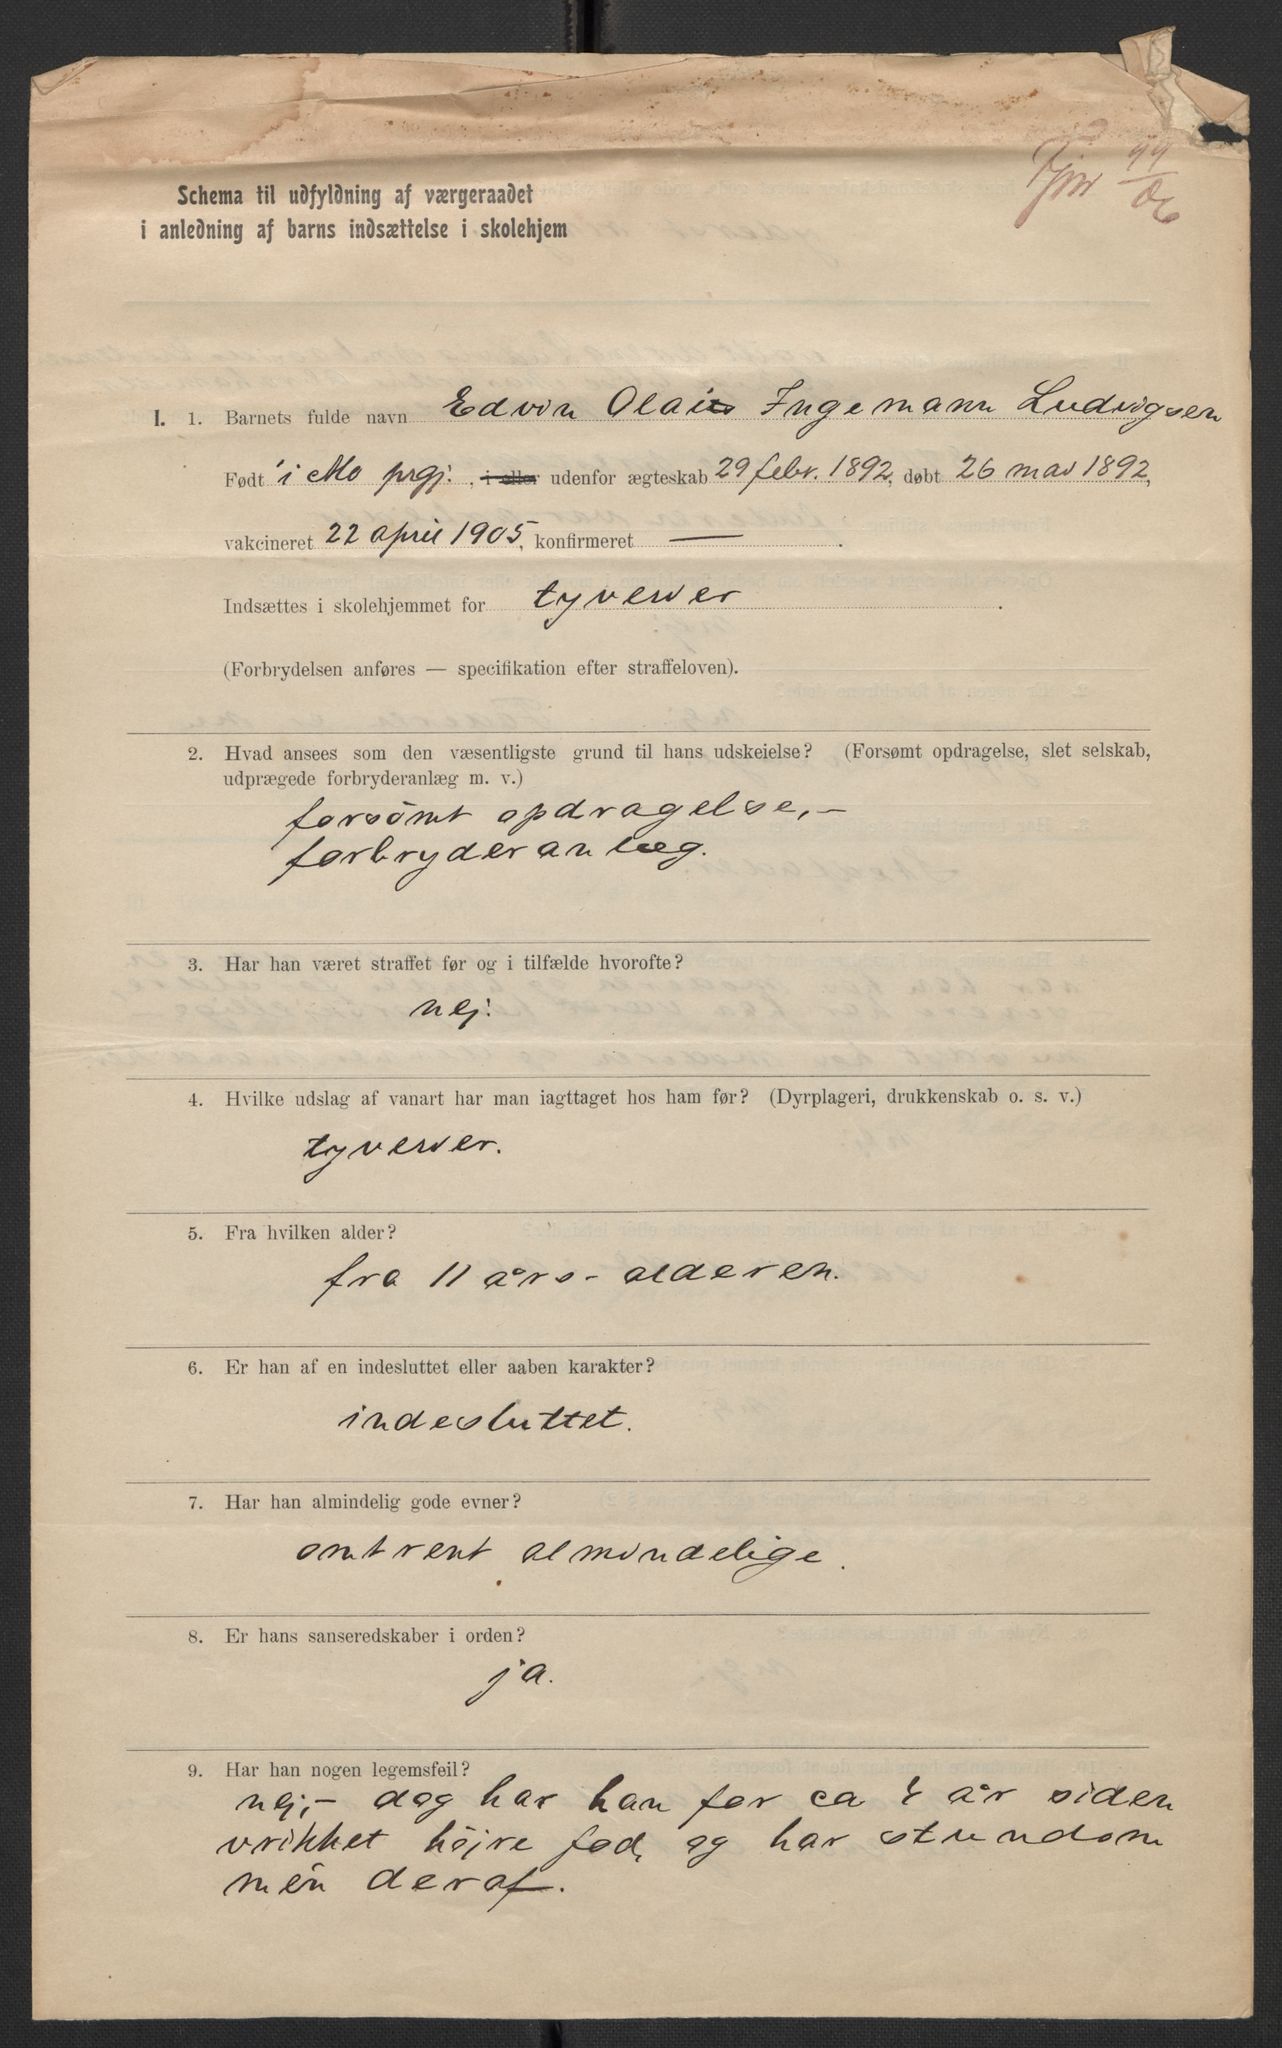 99
06
Schema til udfyldning af værgeraadet
i anledning af barns indsættelse i skolehjem
I. 1. Barnets fulde navn Edvin Olais Ingemann Ludvigsen
Født i Mo prgj., i eller udenfor ægteskab 29 febr. 1892, døbt 26 mai 1892,
vakcineret 22 april 1905, konfirmeret —
Indsættes i skolehjemmet for tyverier.
(Forbrydelsen anføres — specifikation efter straffeloven).
2. Hvad ansees som den væsentligste grund til hans udskeielse? (Forsømt opdragelse, slet selskab,
udprægede forbryderanlæg m. v.)
forsømt opdragelse, –
forbryderanlæg.
3. Har han været straffet før og i tilfælde hvorofte?
nej.
4. Hvilke udslag af vanart har man iagttaget hos ham før? (Dyrplageri, drukkenskab o. s. v.)
tyverier.
5. Fra hvilken alder?
fra 11 års-alderen.
6. Er han af en indesluttet eller aaben karakter?
indesluttet.
7. Har han almindelig gode evner?
omtrent almindelige.
8. Er hans sanseredskaber i orden?
ja.
9. Har han nogen legemsfeil?
nej, – dog har han for ca år siden
vrikket højre fod, og har stundom
mén deraf.